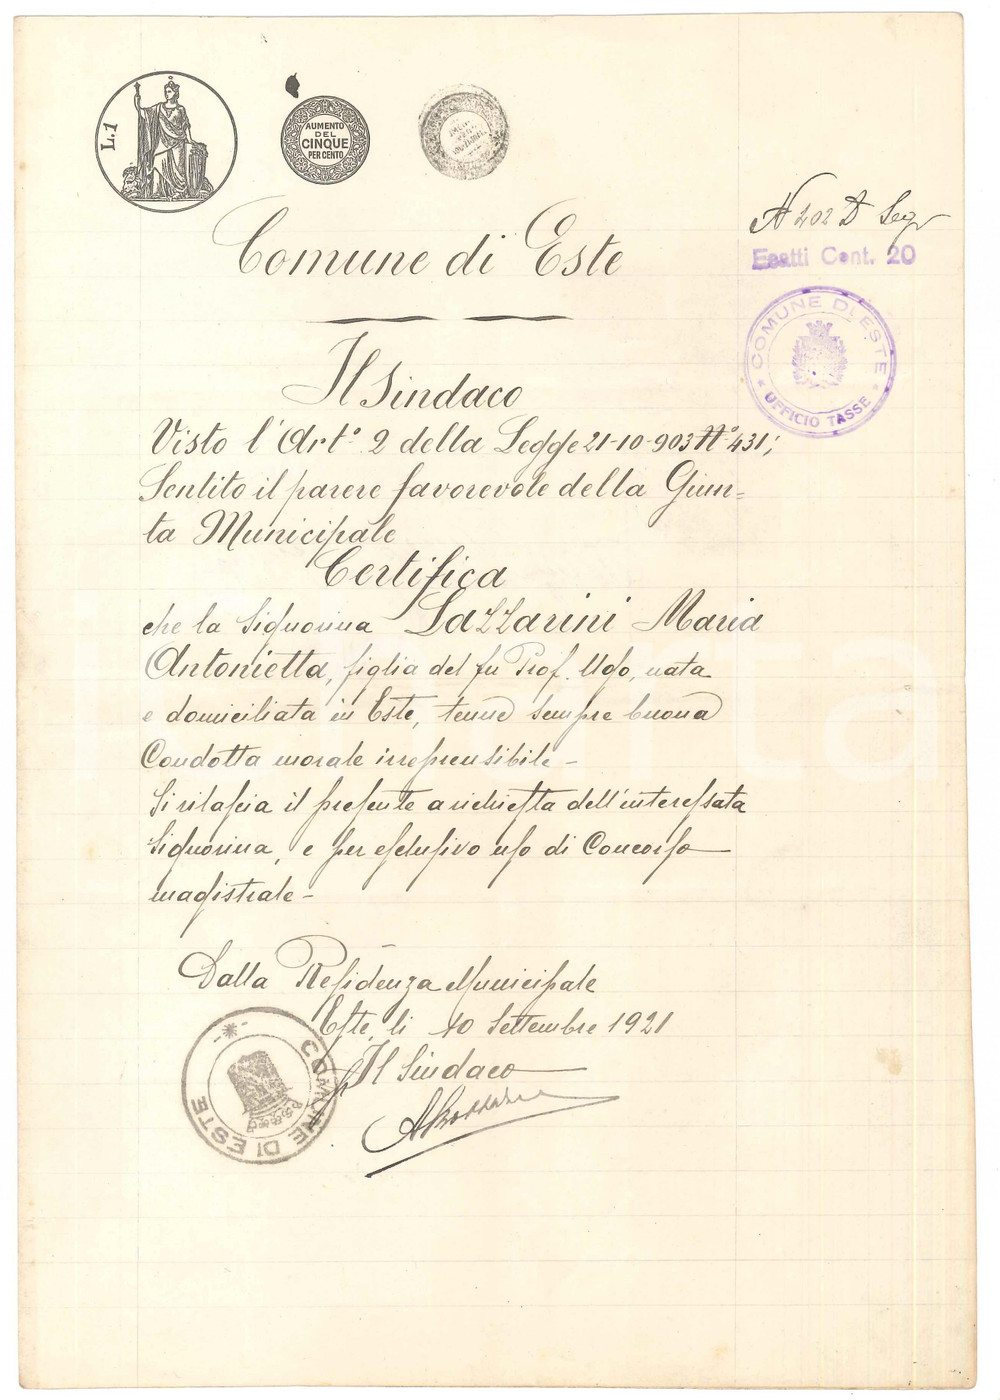 L.1
AUMENTO
DEL
CINQUE
PER CENTO
N 202 D Segr
Esatti Cent. 20
COMUNE DI ESTE
UFFICIO TASSE
Comune di Este
Il Sindaco
Visto l'Art.° 2 della Legge 21-10-903 N° 431;
Sentito il parere favorevole della Giun=
ta Municipale
Certifica
che la Signorina Lazzarini Maria
Antonietta, figlia del fu Prof. Ugo, nata
e domiciliata in Este, tenne sempre buona
Condotta morale irreprensibile -
Si rilascia il presente a richiesta dell'interessata
Signorina, e per esclusivo uso di Concorso
magistrale -
Dalla Residenza Municipale
Este, li 10 Settembre 1921
Il Sindaco
COMUNE DI ESTE